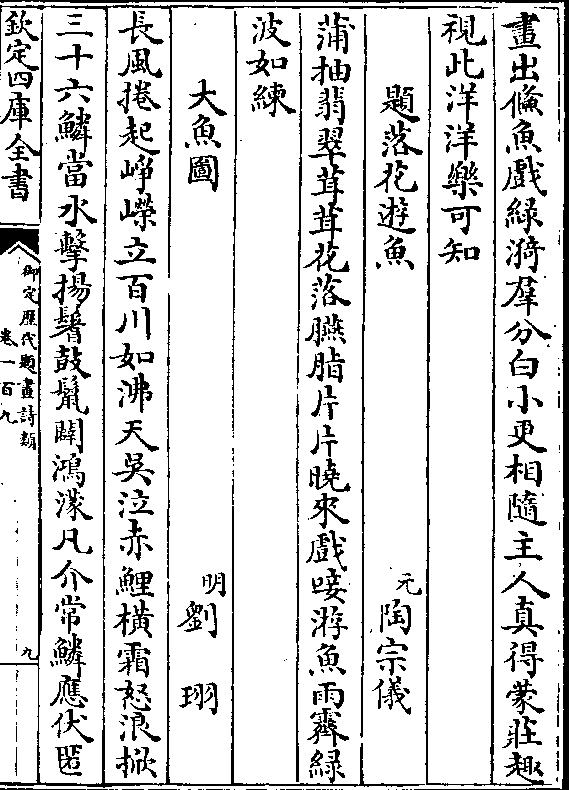 畫出鯈魚戲綠漪羣分白小更相隨主人真得蒙莊趣
視此洋洋樂可知
題落花遊魚
元 陶宗儀
蒲抽翡翠茸茸花落臙脂片片曉來戲唼游魚雨霽綠
波如練
大魚圖
明 劉 珝
長風捲起崢嶸立百川如沸天吳泣赤鯉橫霜怒浪掀
三十六鱗當水擊揚鬐鼓鬛闢鴻濛凡介常鱗應伏匿
欽定四庫全書
御定歷代題畫詩類
卷一百九
九